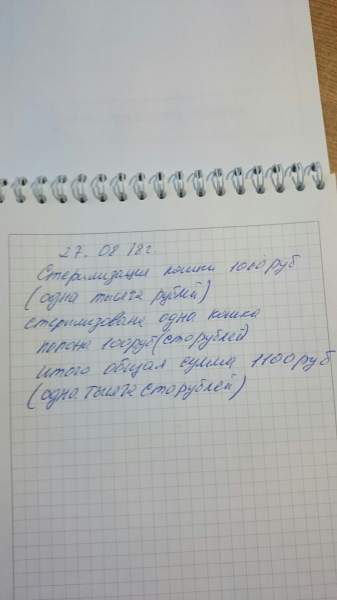 27. 08 18г.
Стерилизация кошки 1000 руб
(одна тысяча рублей)
стерилизована одна кошка
попона 100 руб (сто рублей)
итого общая сумма 1100 руб
(одна тысяча сто рублей)